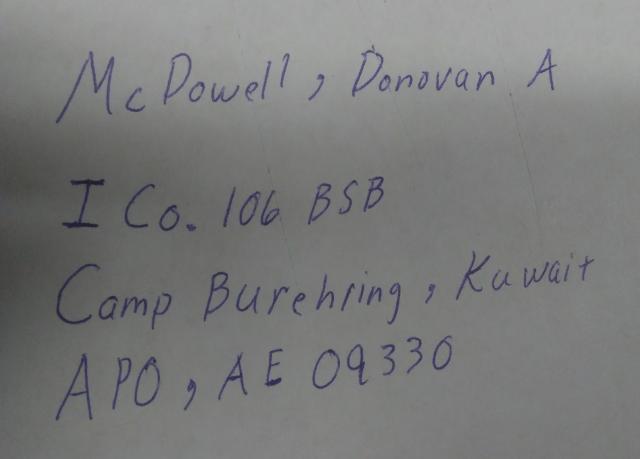 McDowell, Donovan A
I Co. 106 BSB
Camp Burehring, Kuwait
APO, AE 09330